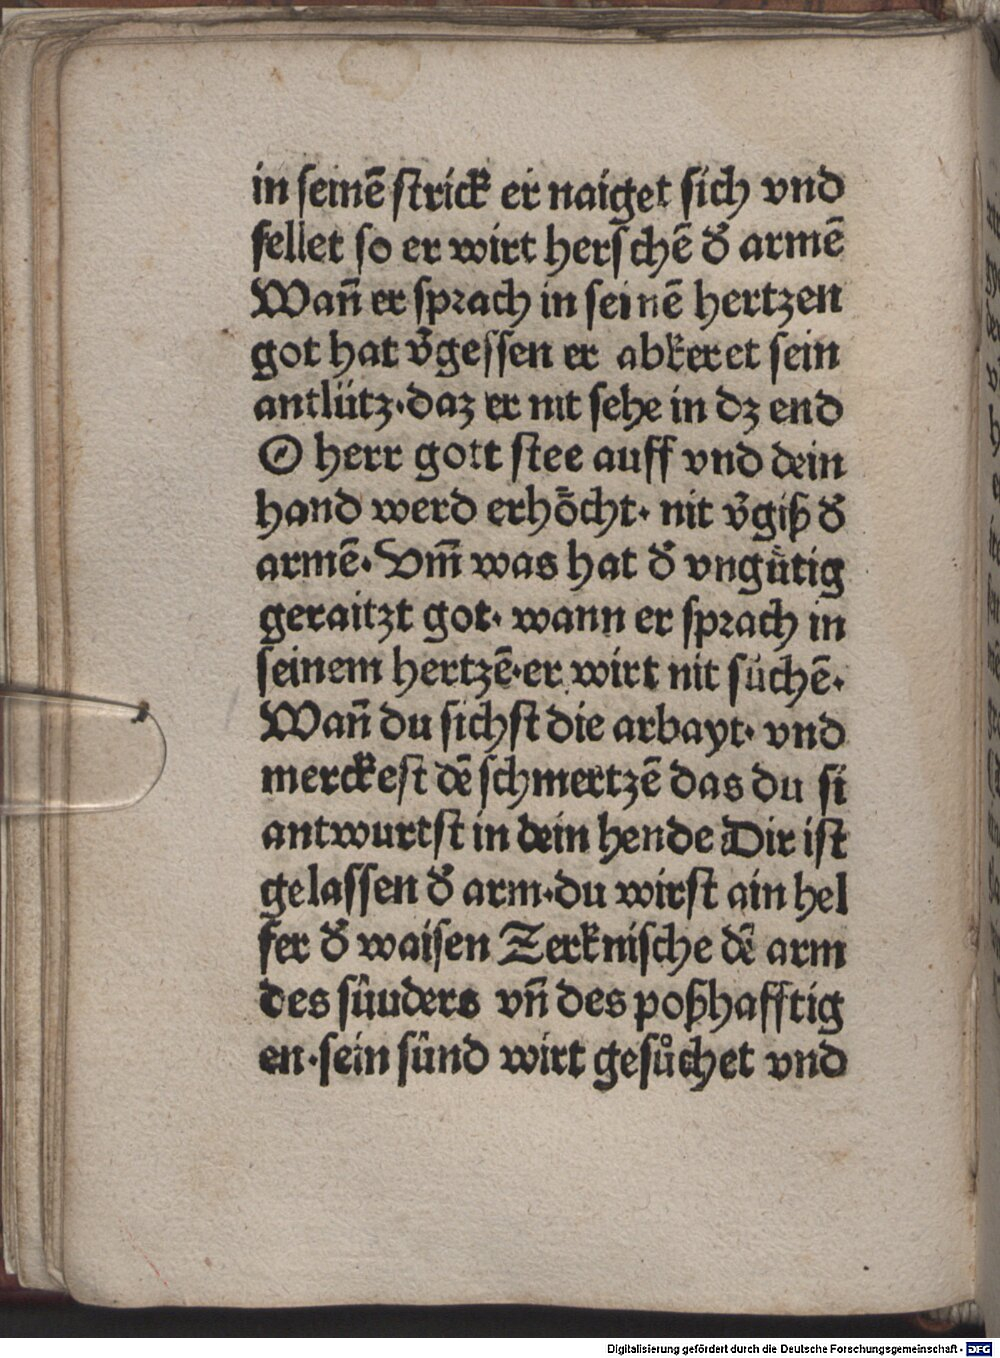 in seinē strick er naiget sich vnd
fellet so er wirt herschē d̕ armē
Wañ er sprach in seinē hertzen
got hat v̕gessen er abkeret sein
antlütz·daz er nit sehe in dz end
O herr gott stee auff vnd dein
hand werd erhöcht· nit v̕giß d̕
armē· Vm̄ was hat d̕ vngütig
geraitzt got· wann er sprach in
seinem hertzē·er wirt nit süchē·
Wañ du sichst die arbayt· vnd
merckest dē schmertzē das du si
antwurtst in dein hende Dir ist
gelassen d̕ arm·du wirst ain hel
fer d̕ waisen Zerknische dē arm
des süuders vñ des poßhafftig
en·sein sünd wirt gesůchet vnd
Digitalisierung gefördert durch die Deutsche Forschungsgemeinschaft - DFG